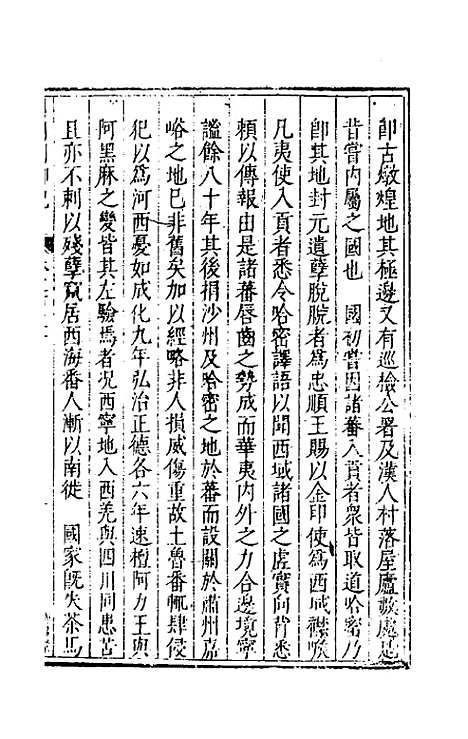 卽古燉煌地其極邊又有巡檢公署及漢人村落屋廬數處是
昔嘗內屬之國也　國初嘗因諸蕃入貢者衆皆取道哈密乃
卽其地封元遺孽脫脫者為忠順王賜以金印使為西域襟喉
凡夷使入貢者悉令哈密譯語以聞西域諸國之虛實向背悉
賴以傳報由是諸蕃唇齒之勢成而華夷內外之力合邊境寧
謐餘八十年其後捐沙州及哈密之地於蕃而設關於肅州嘉
峪之地已非舊矣加以經略非人損威傷重故土魯番輒肆侵
犯以為河西憂如成化九年弘治正德各六年速檀阿力王與
阿黑麻之變皆其左驗焉者况西寧地入西羌與四川同患苦
且亦不剌以殘孽竄居西海番人漸以南徙　國家旣失茶馬